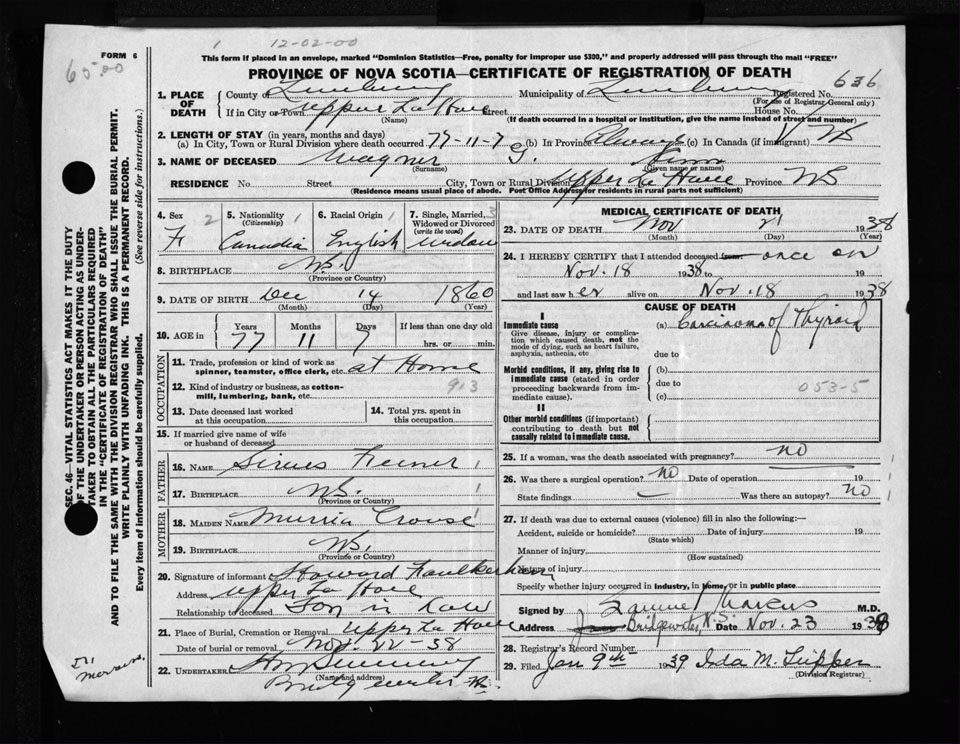 1 12-02-00
FORM 6
65.00
This form if placed in an envelope, marked "Dominion Statistics—Free, penalty for improper use $300," and properly addressed will pass through the mail "FREE"
PROVINCE OF NOVA SCOTIA—CERTIFICATE OF REGISTRATION OF DEATH
1. PLACE OF DEATH County of Lunenburg Municipality of Lunenburg Registered No. 636
(For use of Registrar-General only)
If in City or Town Upper La Have Street House No.
(Name) (If death occurred in a hospital or institution, give the name instead of street and number)
2. LENGTH OF STAY (in years, months and days)
(a) In City, Town or Rural Division where death occurred 77-11-7 (b) In Province Always (c) In Canada (if immigrant)
3. NAME OF DECEASED Wagner
(Surname) (Given name or names)
RESIDENCE No. Street City, Town or Rural Division Upper La Have Province NS
(Residence means usual place of abode. Post Office Address for residents in rural parts not sufficient)
SEC. 46—VITAL STATISTICS ACT MAKES IT THE DUTY
OF THE UNDERTAKER OR PERSON ACTING AS UNDER-
TAKER TO OBTAIN ALL THE PARTICULARS REQUIRED
IN THE "CERTIFICATE OF REGISTRATION OF DEATH"
AND TO FILE THE SAME WITH THE DIVISION REGISTRAR WHO SHALL ISSUE THE BURIAL PERMIT.
WRITE PLAINLY WITH UNFADING INK. THIS IS A PERMANENT RECORD.
Every item of information should be carefully supplied. (See reverse side for instructions.)
4. Sex 2 5. Nationality 1 6. Racial Origin 1 7. Single, Married, 3
(Citizenship) Widowed or Divorced
(write the word)
F Canadian English widow
8. BIRTHPLACE NS.
(Province or Country)
9. DATE OF BIRTH Dec 14 1860
(Month) (Day) (Year)
10. AGE in Years Months Days If less than one day old
77 11 7 hrs. or min.
OCCUPATION
11. Trade, profession or kind of work as
spinner, teamster, office clerk, etc. at Home
12. Kind of industry or business, as cotton- 913
mill, lumbering, bank, etc.
13. Date deceased last worked 14. Total yrs. spent in
at this occupation this occupation
15. If married give name of wife
or husband of deceased
FATHER
16. NAME 1
17. BIRTHPLACE NS. 1
(Province or Country)
MOTHER
18. MAIDEN NAME Crouse 1
19. BIRTHPLACE NS.
(Province or Country)
20. Signature of informant Howard
Address Upper La Have
Relationship to deceased Son in law
21. Place of Burial, Cremation or Removal Upper La Have
Date of burial or removal Nov. 22-38
22. UNDERTAKER
(Name and address)
Bridgewater NS
MEDICAL CERTIFICATE OF DEATH
23. DATE OF DEATH Nov 21 1938
(Month) (Day) (Year)
24. I HEREBY CERTIFY that I attended deceased from once on
Nov. 18 1938 to 19
and last saw her alive on Nov. 18 1938
CAUSE OF DEATH
I
Immediate cause (a) Carcinoma of Thyroid
Give disease, injury or complica-
tion which caused death, not the
mode of dying, such as heart failure,
asphyxia, asthenia, etc due to
Morbid conditions, if any, giving rise to (b)
immediate cause (stated in order due to 053-5
proceeding backwards from im-
mediate cause). (c)
II
Other morbid conditions (if important)
contributing to death but not
causally related to immediate cause.
25. If a woman, was the death associated with pregnancy? no
26. Was there a surgical operation? no Date of operation 19
State findings — Was there an autopsy? no
27. If death was due to external causes (violence) fill in also the following:—
Accident, suicide or homicide? Date of injury 19
(State which)
Manner of injury
(How sustained)
Nature of injury
Specify whether injury occurred in Industry, in home, or in public place
Signed by Samuel Marcus M.D.
Address Bridgewater, N.S. Date Nov. 23 1938
28. Registrar's Record Number
29. Filed Jan 9th 1939 Ida M.
(Division Registrar)